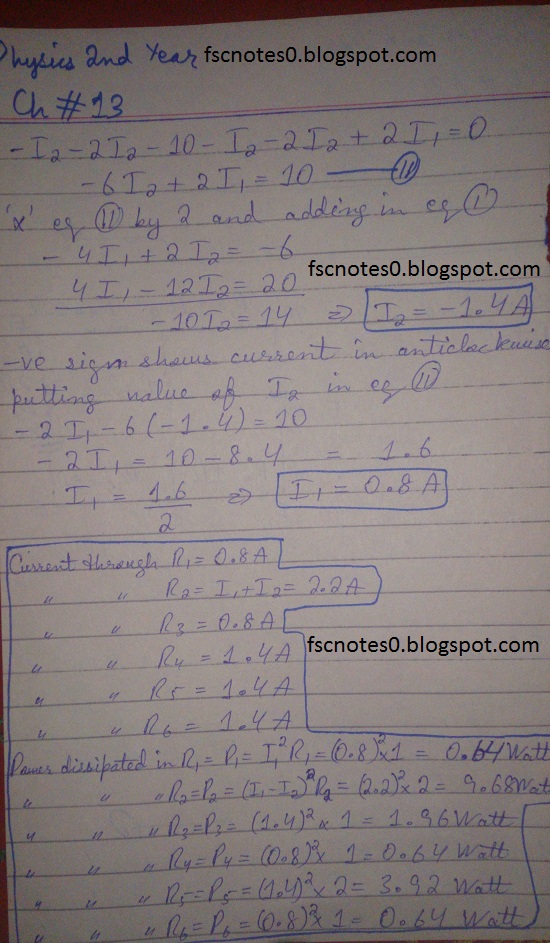 Physics 2nd Year fscnotes0.blogspot.com
Ch # 13
-I₂-2I₂-10-I₂-2I₂+2I₁=0
-6I₂+2I₁=10 — (11)
'x' eq (11) by 2 and adding in eq (1)
- 4I₁+2I₂= -6
fscnotes0.blogspot.com
4I₁-12I₂= 20
-10I₂=14 ⇒ I₂=-1.4A
-ve sign shows current in anticlockwise
putting value of I₂ in eq (11)
- 2I₁-6(-1.4)=10
- 2I₁= 10-8.4 = 1.6
I₁= 1.6/2 ⇒ I₁=0.8A
Current through R₁=0.8A
" " R₂=I₁+I₂=2.2A
" " R₃=0.8A
fscnotes0.blogspot.com
" " R₄=1.4A
" " R₅=1.4A
" " R₆=1.4A
Power dissipated in R₁=P₁=I₁²R₁=(0.8)²x1= 0.64Watt
" " " R₂=P₂=(I₁-I₂)²R₂=(2.2)²x2=9.68Wat
" " " R₃=P₃=(1.4)²x1=1.96Watt
" " " R₄=P₄=(0.8)²x1=0.64Watt
" " " R₅=P₅=(1.4)²x2=3.92Watt
" " " R₆=P₆=(0.8)²x1=0.64Watt